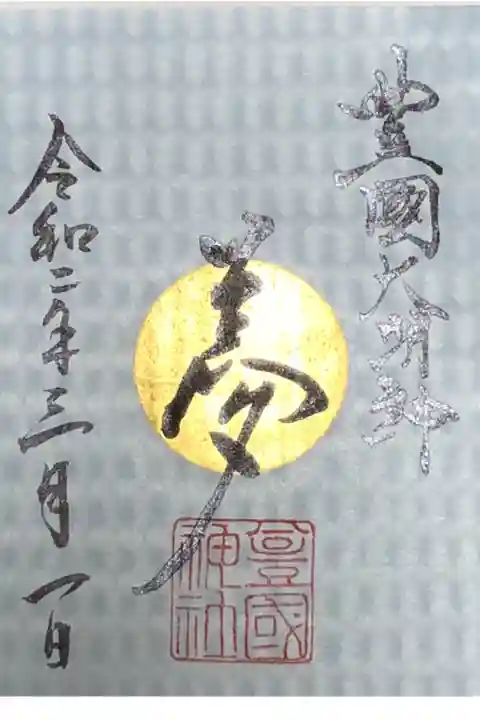 豊國大明神
夢
豊國
神社
令和二年三月一日